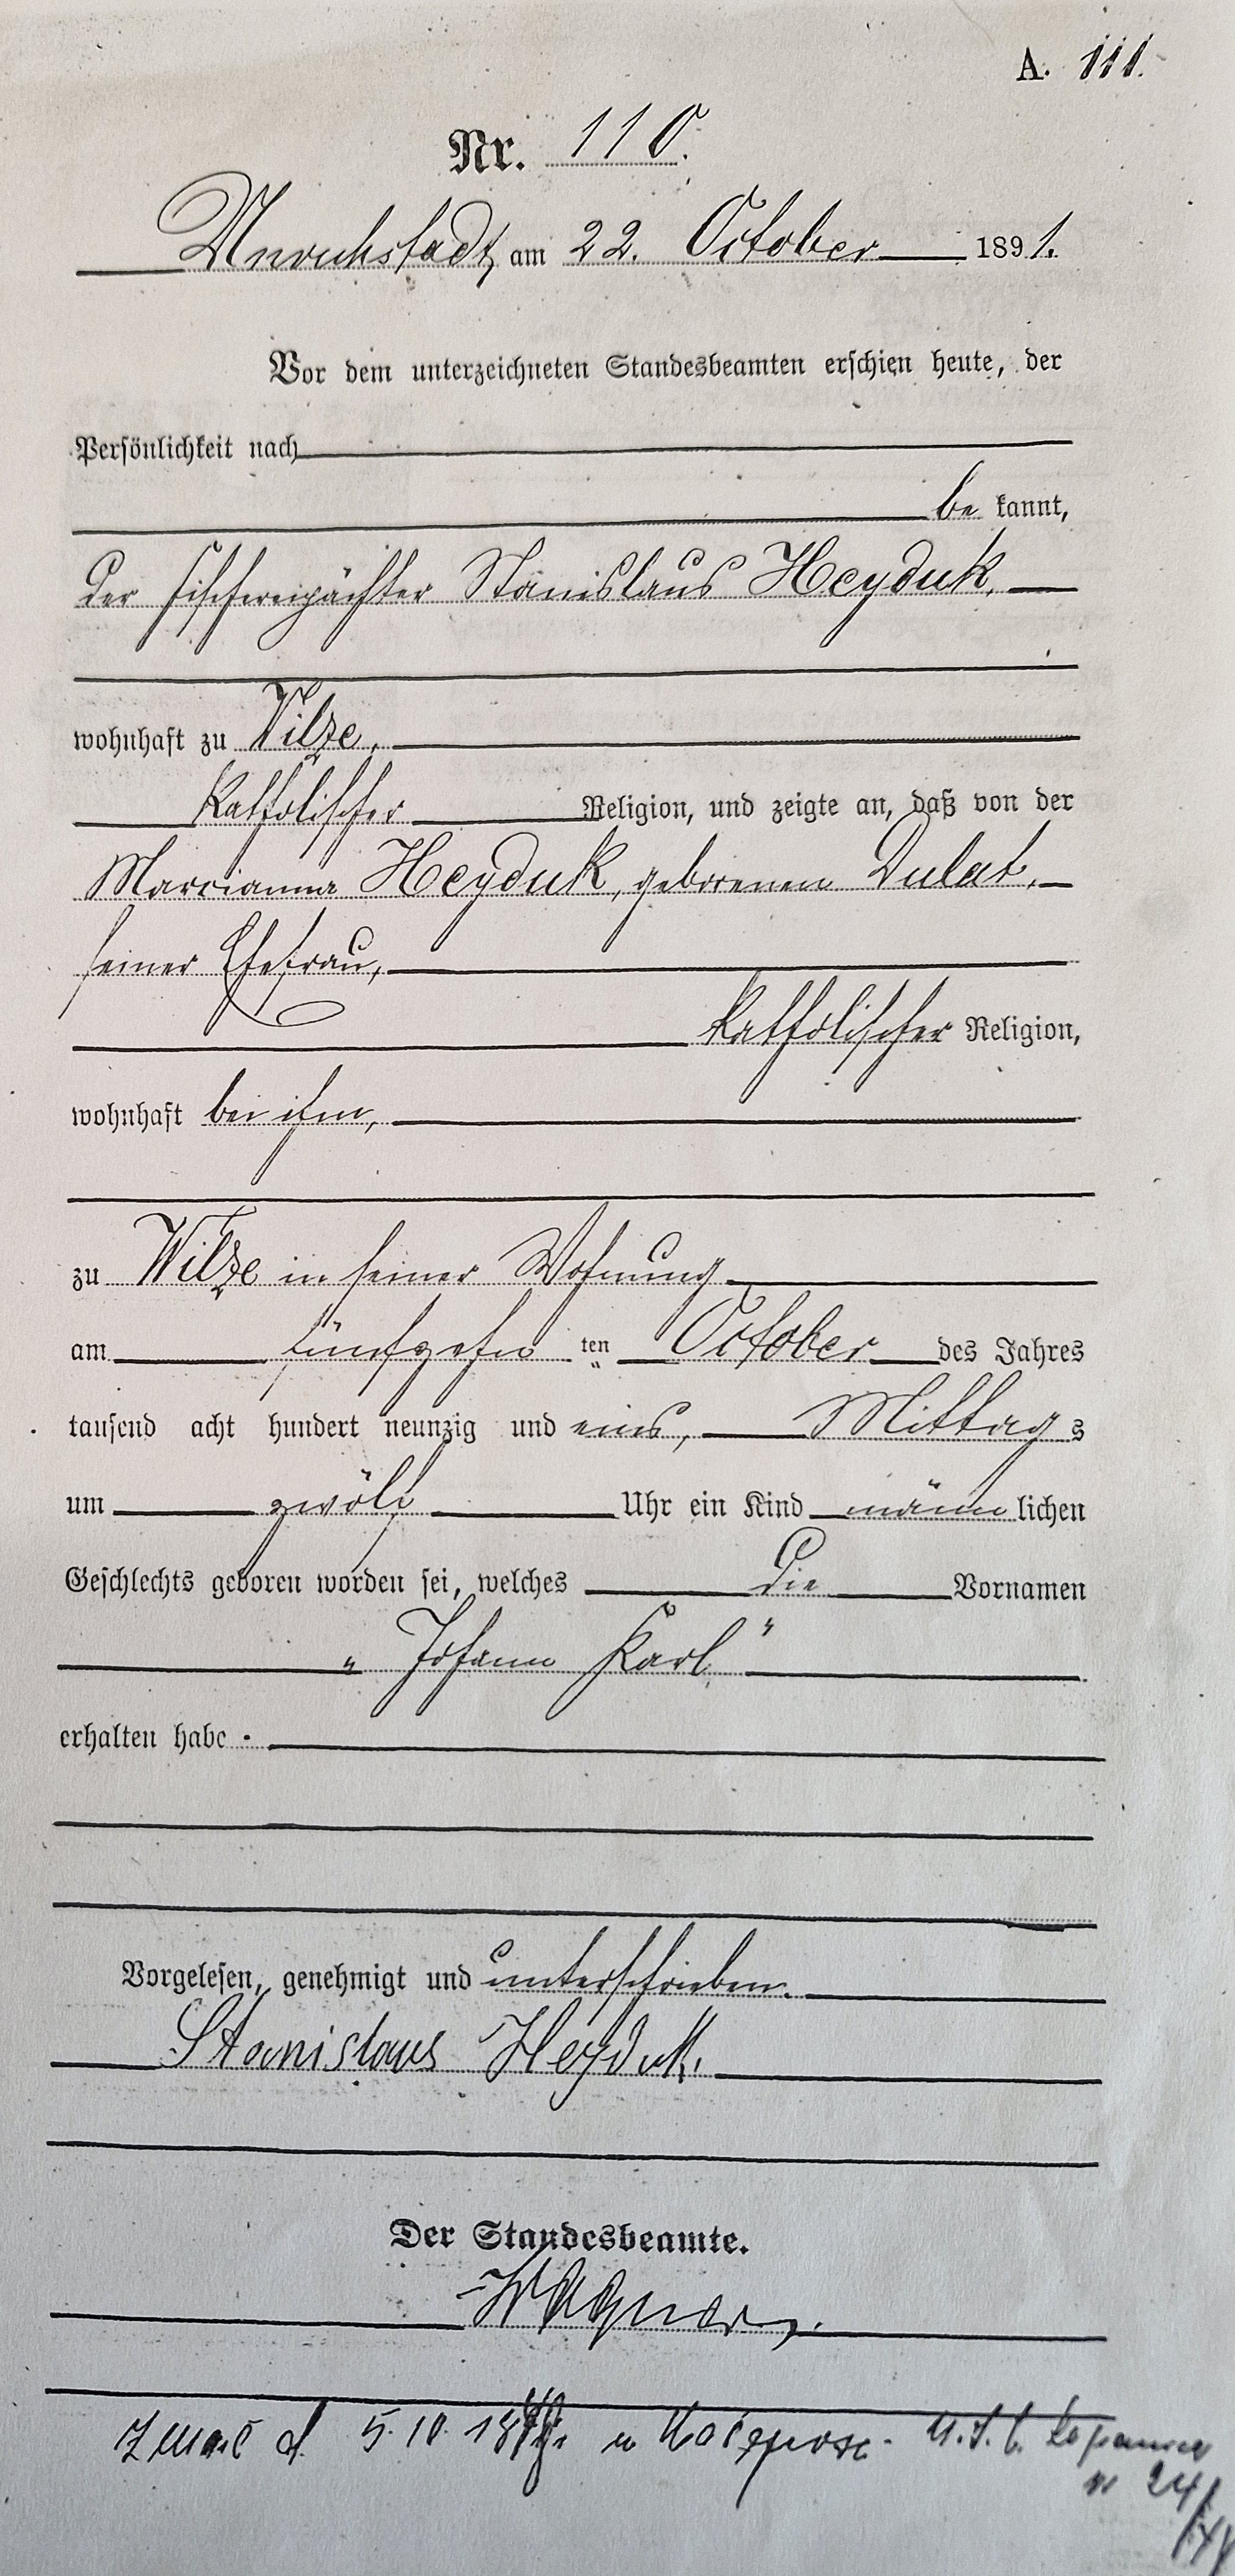 A. 111.
Nr. 110.
Unruhstadt, am 22. October 1891.
Vor dem unterzeichneten Standesbeamten erschien heute, der
Persönlichkeit nach
be kannt,
der Fischereipächter Stanislaus Heyduk,
wohnhaft zu Wilze,
katholischer Religion, und zeigte an, daß von der
Marcianna Heyduk, geborenen Dulat,
seiner Ehefrau,
katholischer Religion,
wohnhaft bei ihm,
zu Wilze in seiner Wohnung
am fünfzehn ten October des Jahres
tausend acht hundert neunzig und eins, Mittag s
um zwölf Uhr ein Kind männ lichen
Geschlechts geboren worden sei, welches die Vornamen
„Johann Karl"
erhalten habe.
Vorgelesen, genehmigt und unterschrieben.
Stanislaus Heyduk.
Der Standesbeamte.
Wagner.
5.10. w U.S.C.
nr 24/